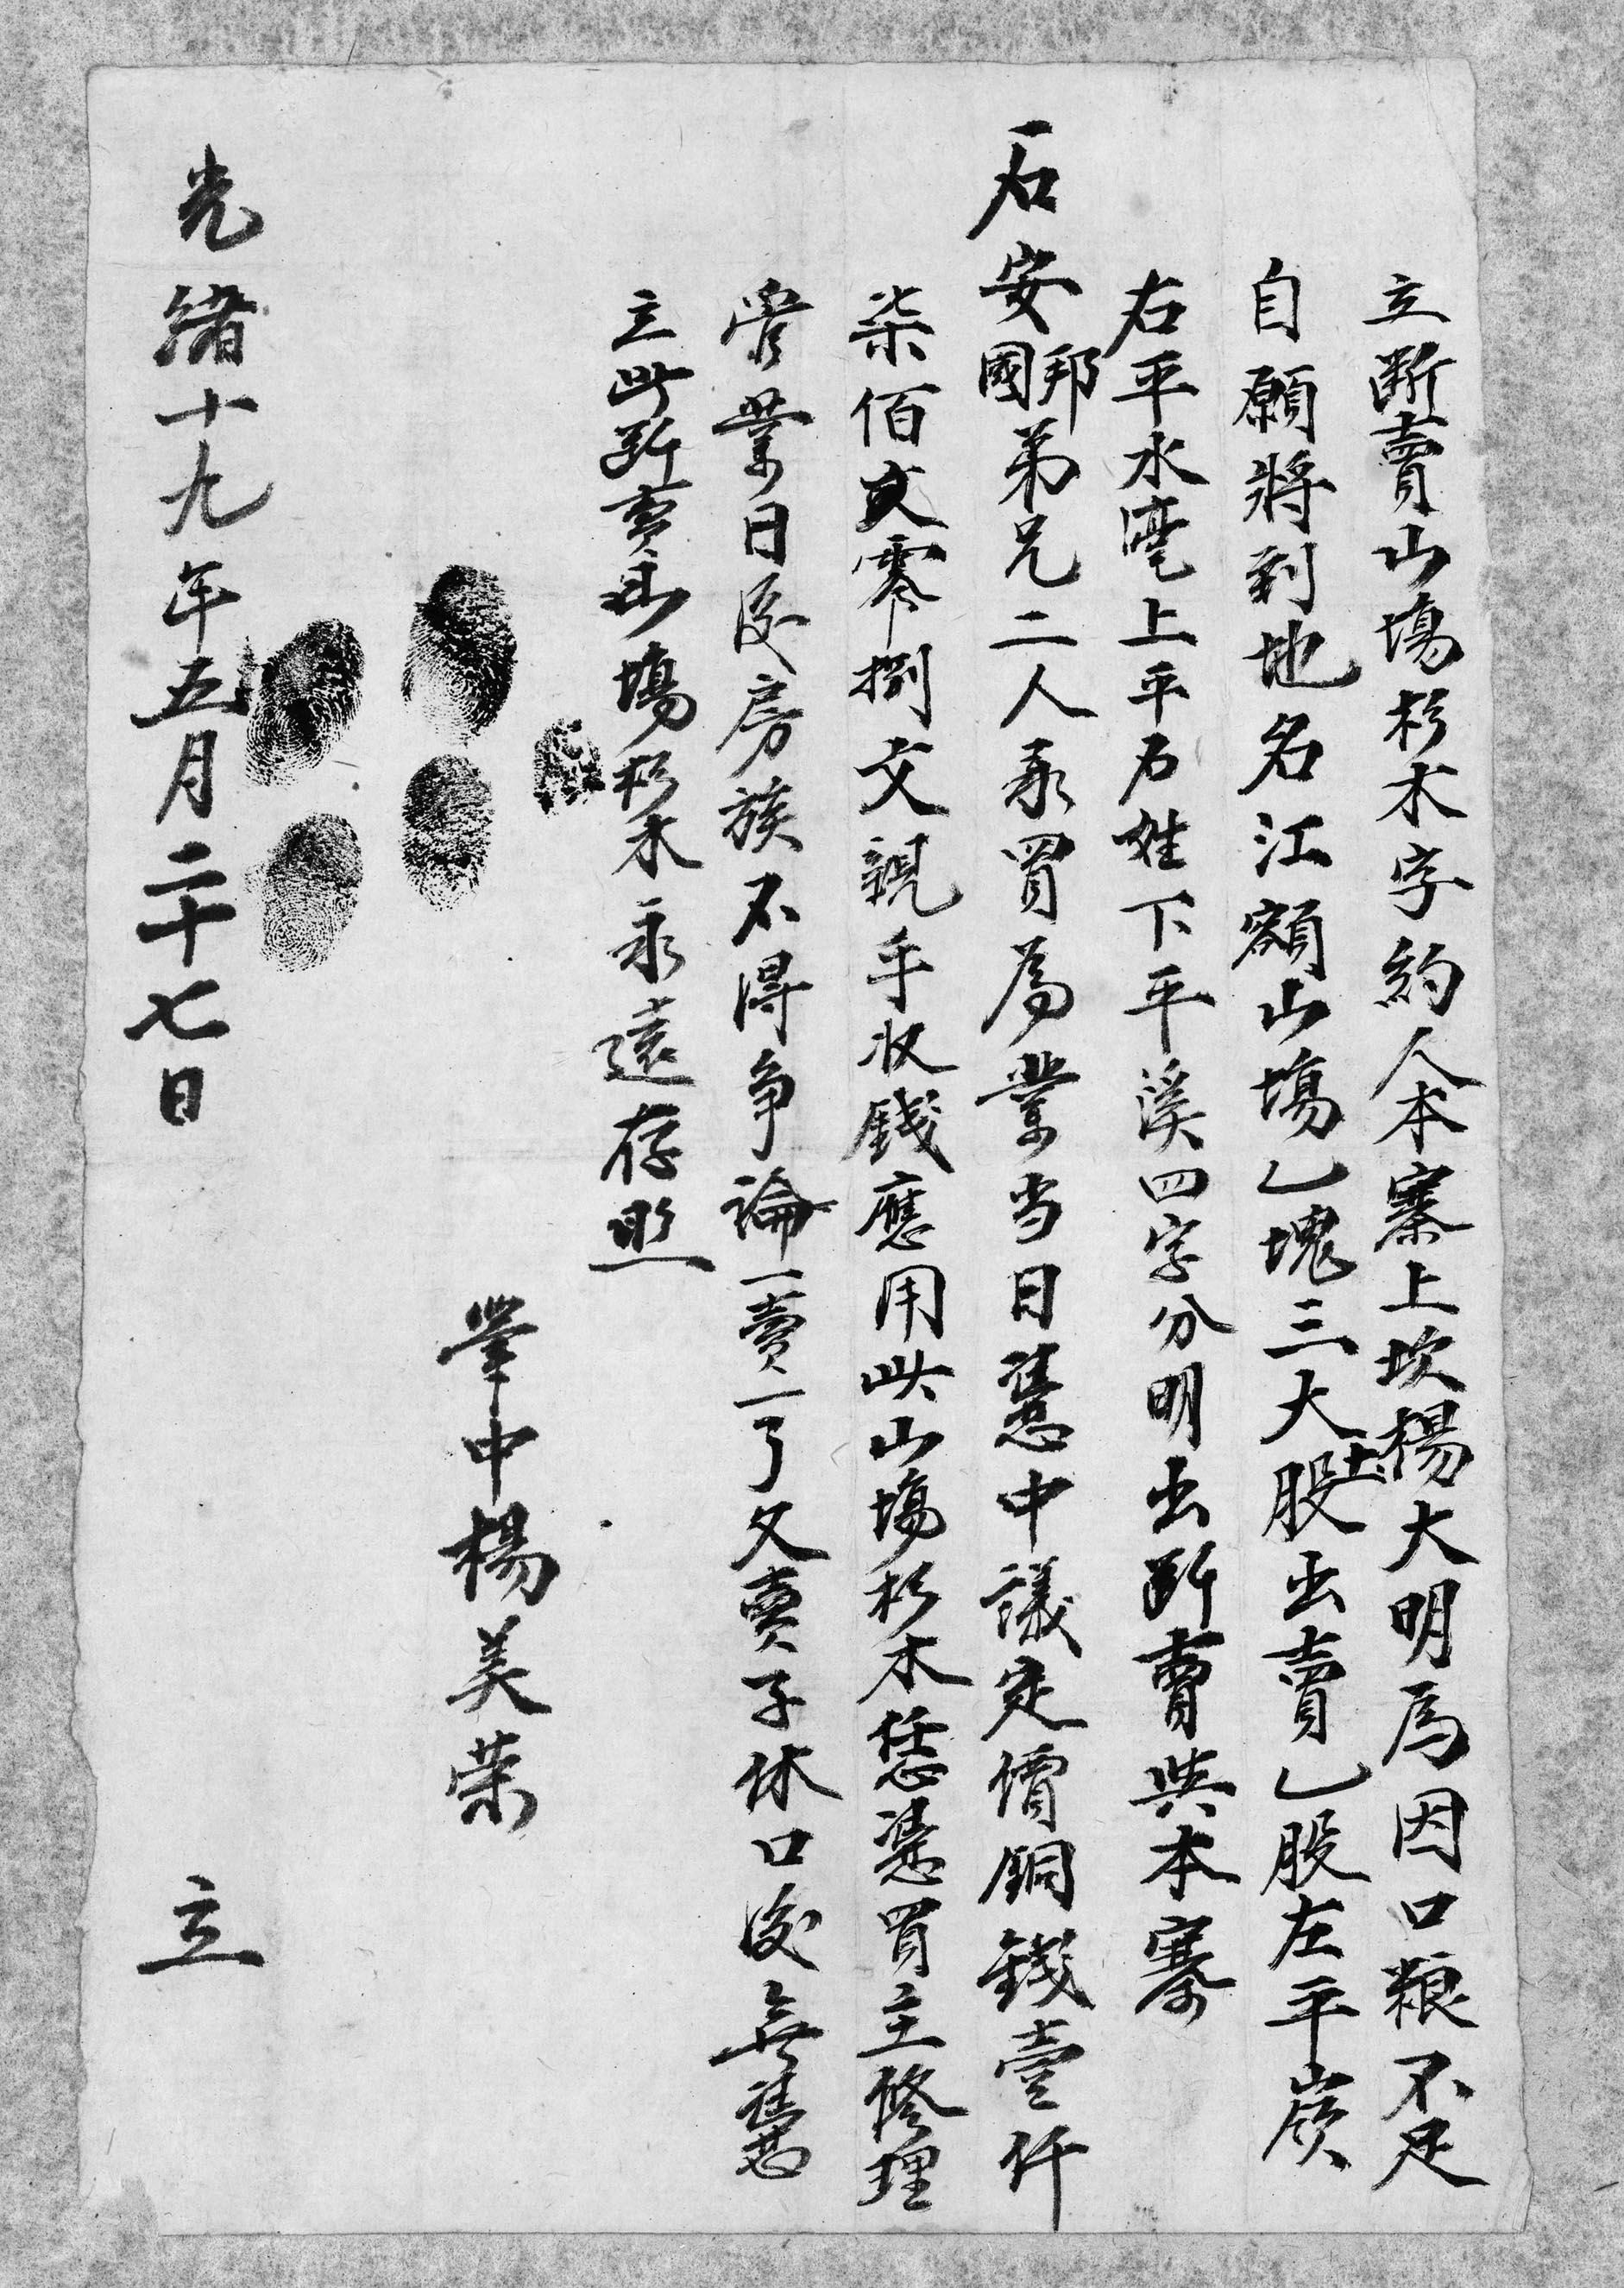 立斷賣山塲杉木字約人本寨上坎楊大明爲因口粮不足
自願將到地名江額山塲乙塊三大股出賣乙股左平嶺
右平水灣上平石姓下平溪四字分明出斷賣與本寨
石安邦國弟兄二人承買爲業当日憑中議定價銅錢壹仟
柒佰文零捌文親手收錢應用此山塲杉木恁憑買主修理
管業日後房族不得争論一賣一了父賣子休口後無憑
立此斷賣山塲杉木永遠存照
筆中楊美荣
光緒十九年五月二十七日 立